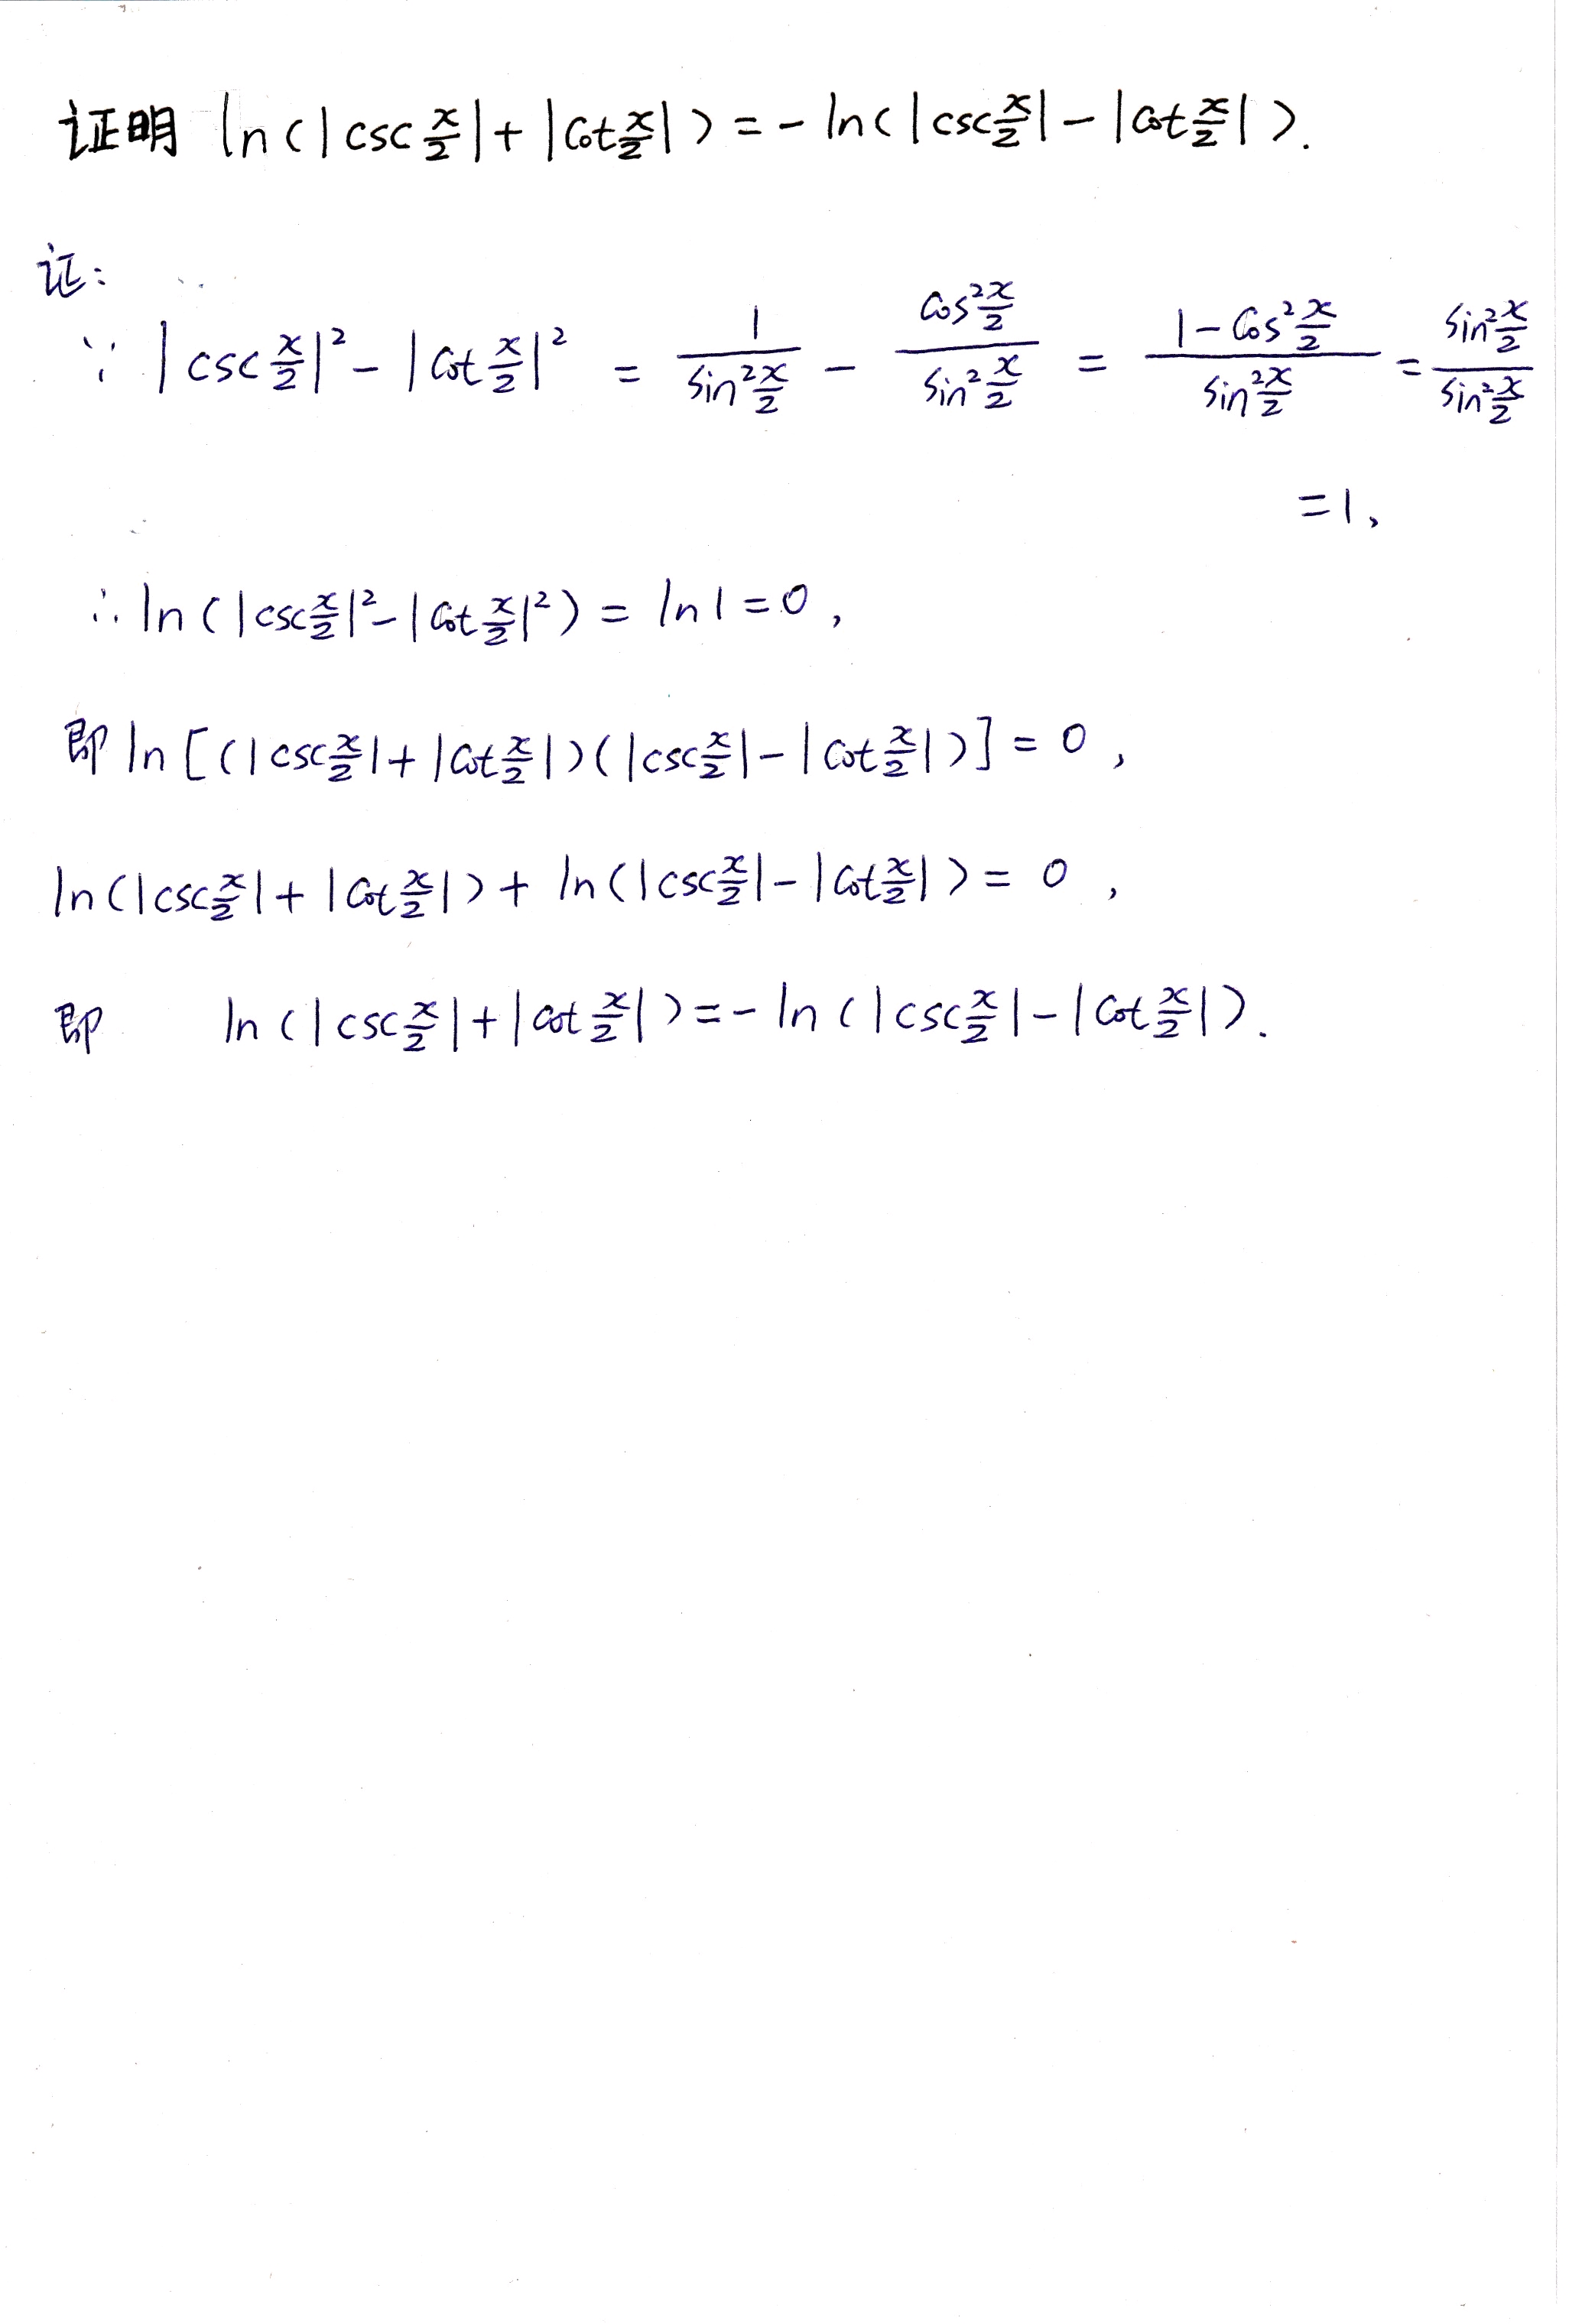 证明 ln(|csc x/2|+|cot x/2|)=-ln(|csc x/2|-|cot x/2|).
证:
∵ |csc x/2|²-|cot x/2|² = 1/sin² x/2 - cos² x/2/sin² x/2 = 1-cos² x/2/sin² x/2 = sin² x/2/sin² x/2
=1,
∴ ln(|csc x/2|²-|cot x/2|²) = ln1=0,
即 ln[(|csc x/2|+|cot x/2|)(|csc x/2|-|cot x/2|)]=0,
ln(|csc x/2|+|cot x/2|)+ln(|csc x/2|-|cot x/2|)=0,
即 ln(|csc x/2|+|cot x/2|)=-ln(|csc x/2|-|cot x/2|).